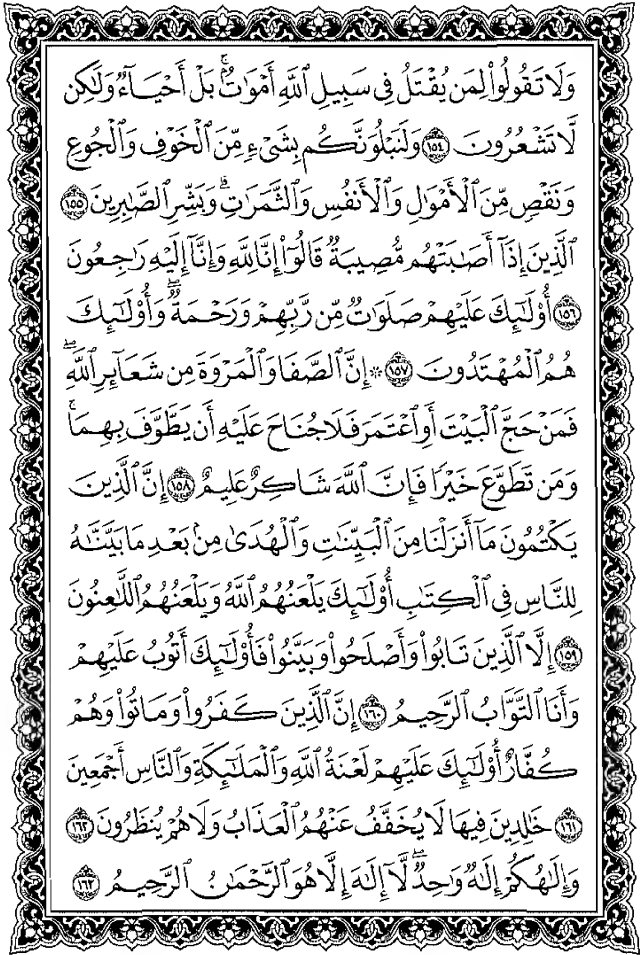 وَلَا تَقُولُوا۟ لِمَن يُقْتَلُ فِى سَبِيلِ ٱللَّهِ أَمْوَٰتٌۢ ۚ بَلْ أَحْيَآءٌ وَلَٰكِن
لَّا تَشْعُرُونَ ١٥٤ وَلَنَبْلُوَنَّكُم بِشَىْءٍ مِّنَ ٱلْخَوْفِ وَٱلْجُوعِ
وَنَقْصٍ مِّنَ ٱلْأَمْوَٰلِ وَٱلْأَنفُسِ وَٱلثَّمَرَٰتِ ۗ وَبَشِّرِ ٱلصَّٰبِرِينَ ١٥٥
ٱلَّذِينَ إِذَآ أَصَٰبَتْهُم مُّصِيبَةٌ قَالُوٓا۟ إِنَّا لِلَّهِ وَإِنَّآ إِلَيْهِ رَٰجِعُونَ
١٥٦ أُو۟لَٰٓئِكَ عَلَيْهِمْ صَلَوَٰتٌ مِّن رَّبِّهِمْ وَرَحْمَةٌ ۖ وَأُو۟لَٰٓئِكَ
هُمُ ٱلْمُهْتَدُونَ ١٥٧ ۞ إِنَّ ٱلصَّفَا وَٱلْمَرْوَةَ مِن شَعَآئِرِ ٱللَّهِ ۖ
فَمَنْ حَجَّ ٱلْبَيْتَ أَوِ ٱعْتَمَرَ فَلَا جُنَاحَ عَلَيْهِ أَن يَطَّوَّفَ بِهِمَا ۚ
وَمَن تَطَوَّعَ خَيْرًا فَإِنَّ ٱللَّهَ شَاكِرٌ عَلِيمٌ ١٥٨ إِنَّ ٱلَّذِينَ
يَكْتُمُونَ مَآ أَنزَلْنَا مِنَ ٱلْبَيِّنَٰتِ وَٱلْهُدَىٰ مِنۢ بَعْدِ مَا بَيَّنَّٰهُ
لِلنَّاسِ فِى ٱلْكِتَٰبِ أُو۟لَٰٓئِكَ يَلْعَنُهُمُ ٱللَّهُ وَيَلْعَنُهُمُ ٱللَّٰعِنُونَ
١٥٩ إِلَّا ٱلَّذِينَ تَابُوا۟ وَأَصْلَحُوا۟ وَبَيَّنُوا۟ فَأُو۟لَٰٓئِكَ أَتُوبُ عَلَيْهِمْ
وَأَنَا ٱلتَّوَّابُ ٱلرَّحِيمُ ١٦٠ إِنَّ ٱلَّذِينَ كَفَرُوا۟ وَمَاتُوا۟ وَهُمْ
كُفَّارٌ أُو۟لَٰٓئِكَ عَلَيْهِمْ لَعْنَةُ ٱللَّهِ وَٱلْمَلَٰٓئِكَةِ وَٱلنَّاسِ أَجْمَعِينَ
١٦١ خَٰلِدِينَ فِيهَا لَا يُخَفَّفُ عَنْهُمُ ٱلْعَذَابُ وَلَا هُمْ يُنظَرُونَ ١٦٢
وَإِلَٰهُكُمْ إِلَٰهٌ وَٰحِدٌ ۖ لَّآ إِلَٰهَ إِلَّا هُوَ ٱلرَّحْمَٰنُ ٱلرَّحِيمُ ١٦٣